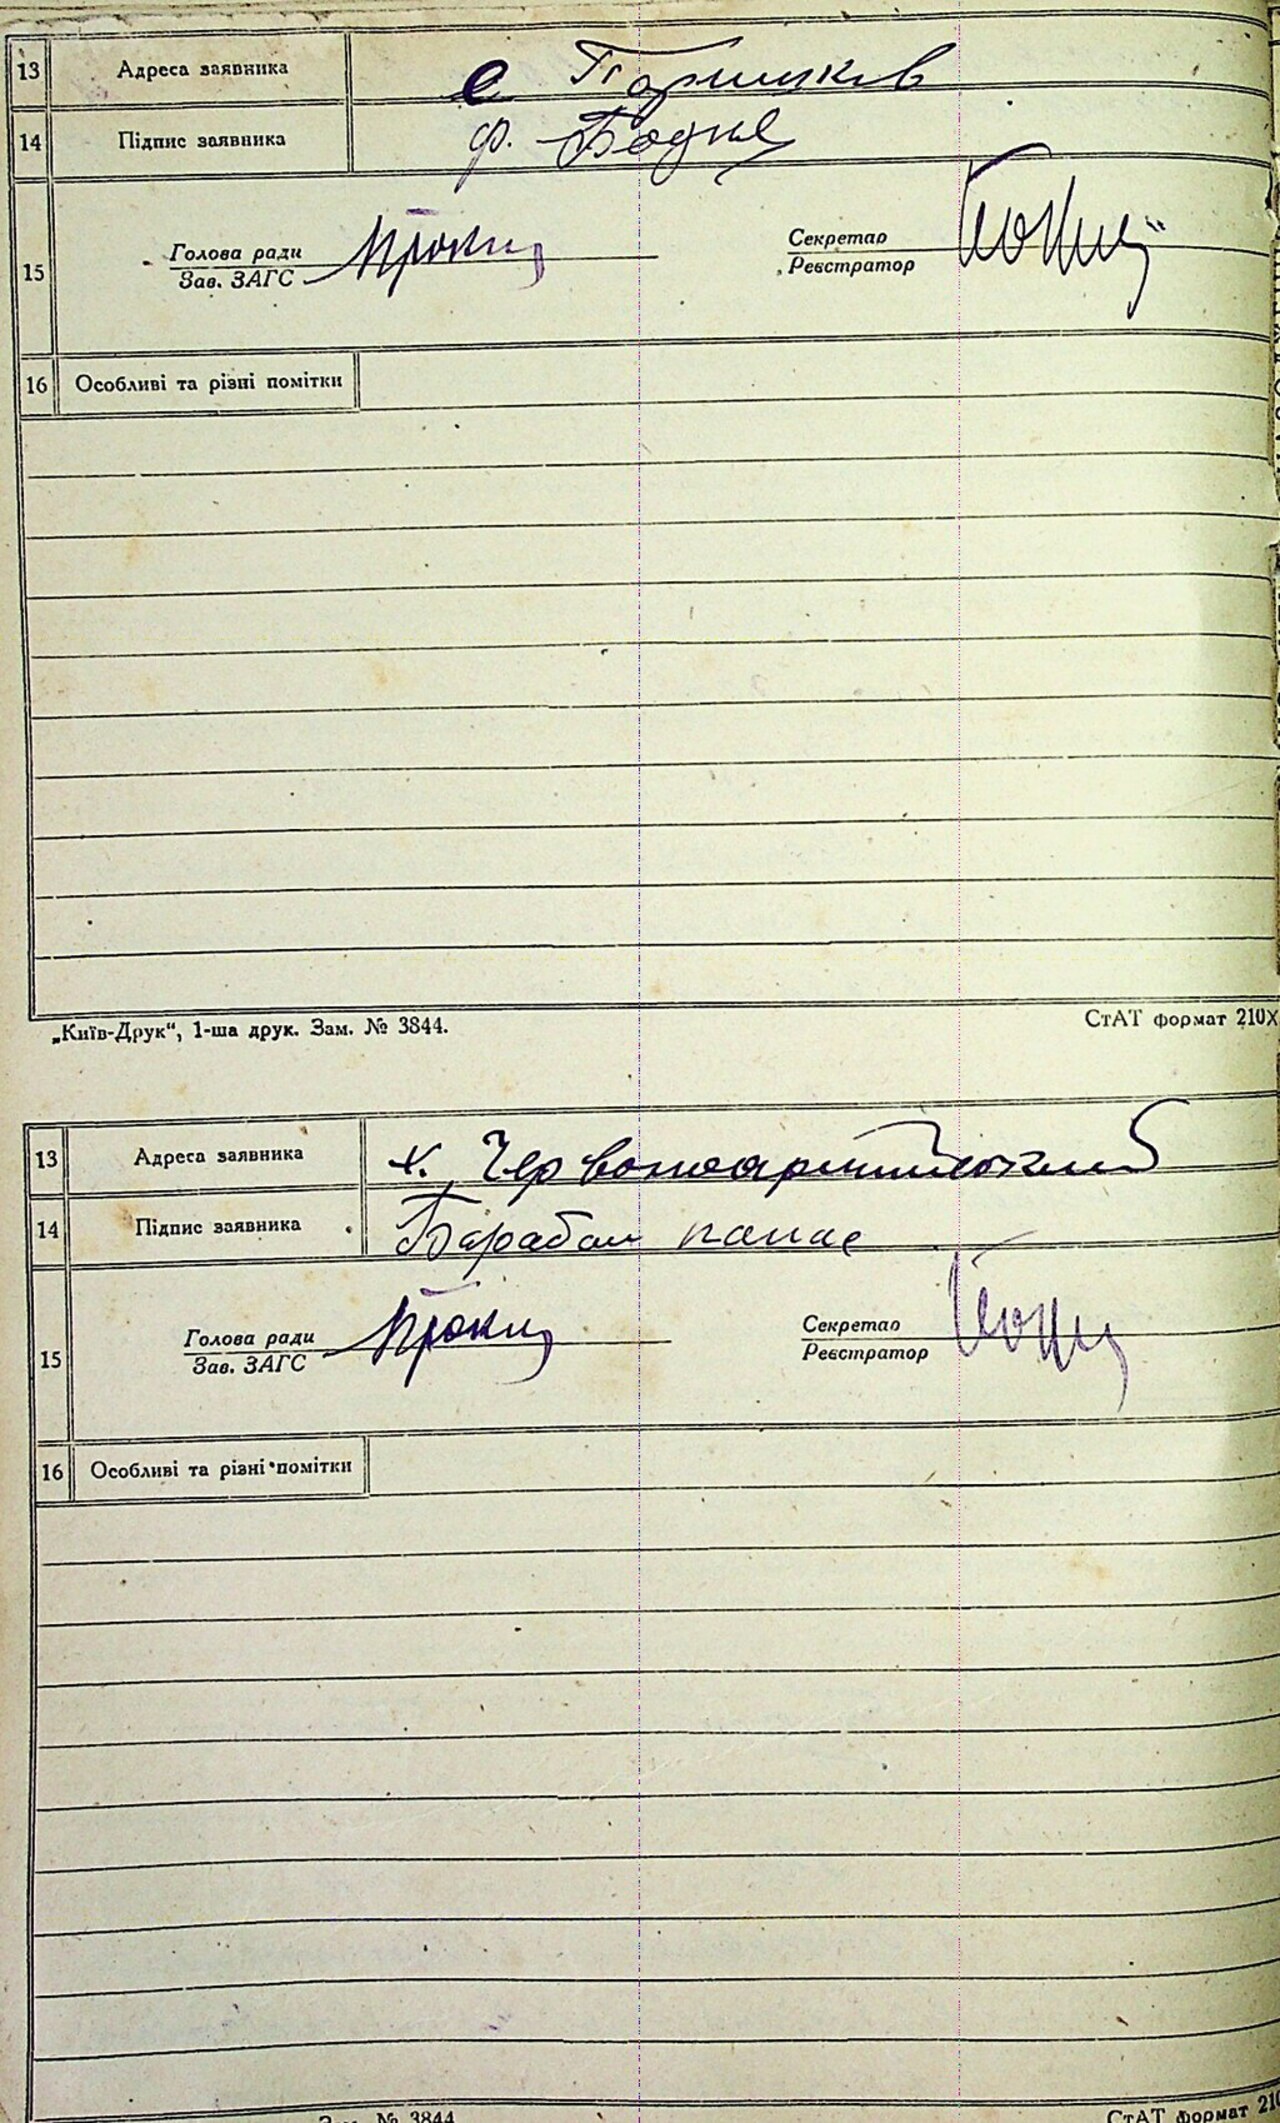 13 Адреса заявника с Паришків
14 Підпис заявника Ф.
15 Голова ради Секретар
Зав. ЗАГС Реєстратор
16 Особливі та різні помітки
„Київ-Друк“, 1-ша друк. Зам. № 3844. СтАТ формат 210X
13 Адреса заявника х. Червоноармійський
14 Підпис заявника Барабаш панас
15 Голова ради Секретар
Зав. ЗАГС Реєстратор
16 Особливі та різні помітки
Зам. № 3844 СтАТ формат 210